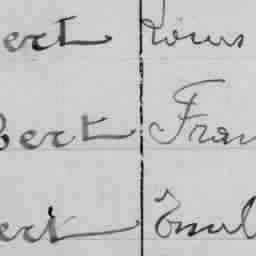 ert Louis
bert Fran
ert Emil